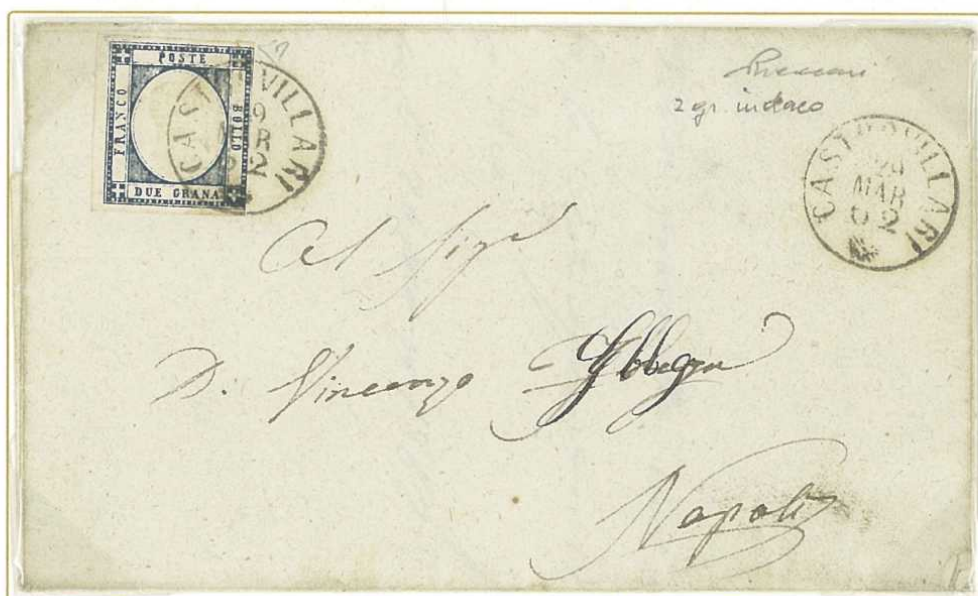 POSTE
FRANCO
BOLLO
DUE GRANA
CAST VILLARI
9
MAR
62
2 gr. indaco
CASTROVILLARI
29
MAR
62
Al Sigr
D. Vincenzo
Napoli